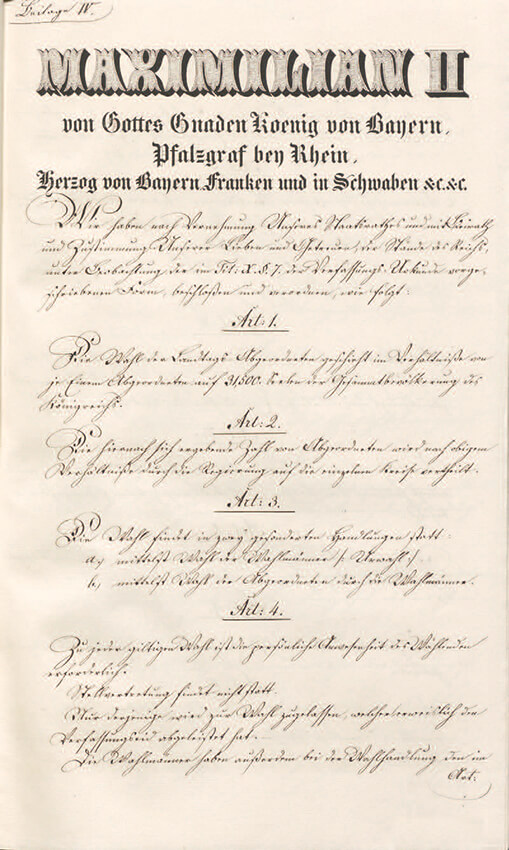 Beilage IV.
MAXIMILIAN II
von Gottes Gnaden Koenig von Bayern,
Pfalzgraf bey Rhein,
Herzog von Bayern, Franken und in Schwaben &c. &c.
Wir haben nach Vernehmung Unseres Staatsrathes und mit Beirath
und Zustimmung Unserer Lieben und Getreuen, der Stände des Reichs,
unter Beobachtung der in Tit: X. §. 7. der Verfassungs-Urkunde vorge-
schriebenen Form, beschloßen und verordnen, wie folgt:
Art: 1.
Die Wahl der Landtags-Abgeordneten geschieht im Verhältniße von
je Einem Abgeordneten auf 31,500 Seelen der Gesammtbevölkerung des
Königreichs.
Art: 2.
Die hiernach sich ergebende Zahl von Abgeordneten wird nach obigem
Verhältniße durch die Regierung auf die einzelnen Kreise vertheilt.
Art: 3.
Die Wahl findet in zwey gesonderten Handlungen statt:
a,) mittelst Wahl der Wahlmänner /: Urwahl :/
b,) mittelst Wahl der Abgeordneten durch die Wahlmänner.
Art: 4.
Zu jeder giltigen Wahl ist die persönliche Anwesenheit des Wählenden
erforderlich.
Stellvertretung findet nicht statt.
Nur derjenige wird zur Wahl zugelassen, welcher erweislich den
Verfassungseid abgeleistet hat.
Die Wahlmänner haben außerdem bei der Wahlhandlung den im
Art: